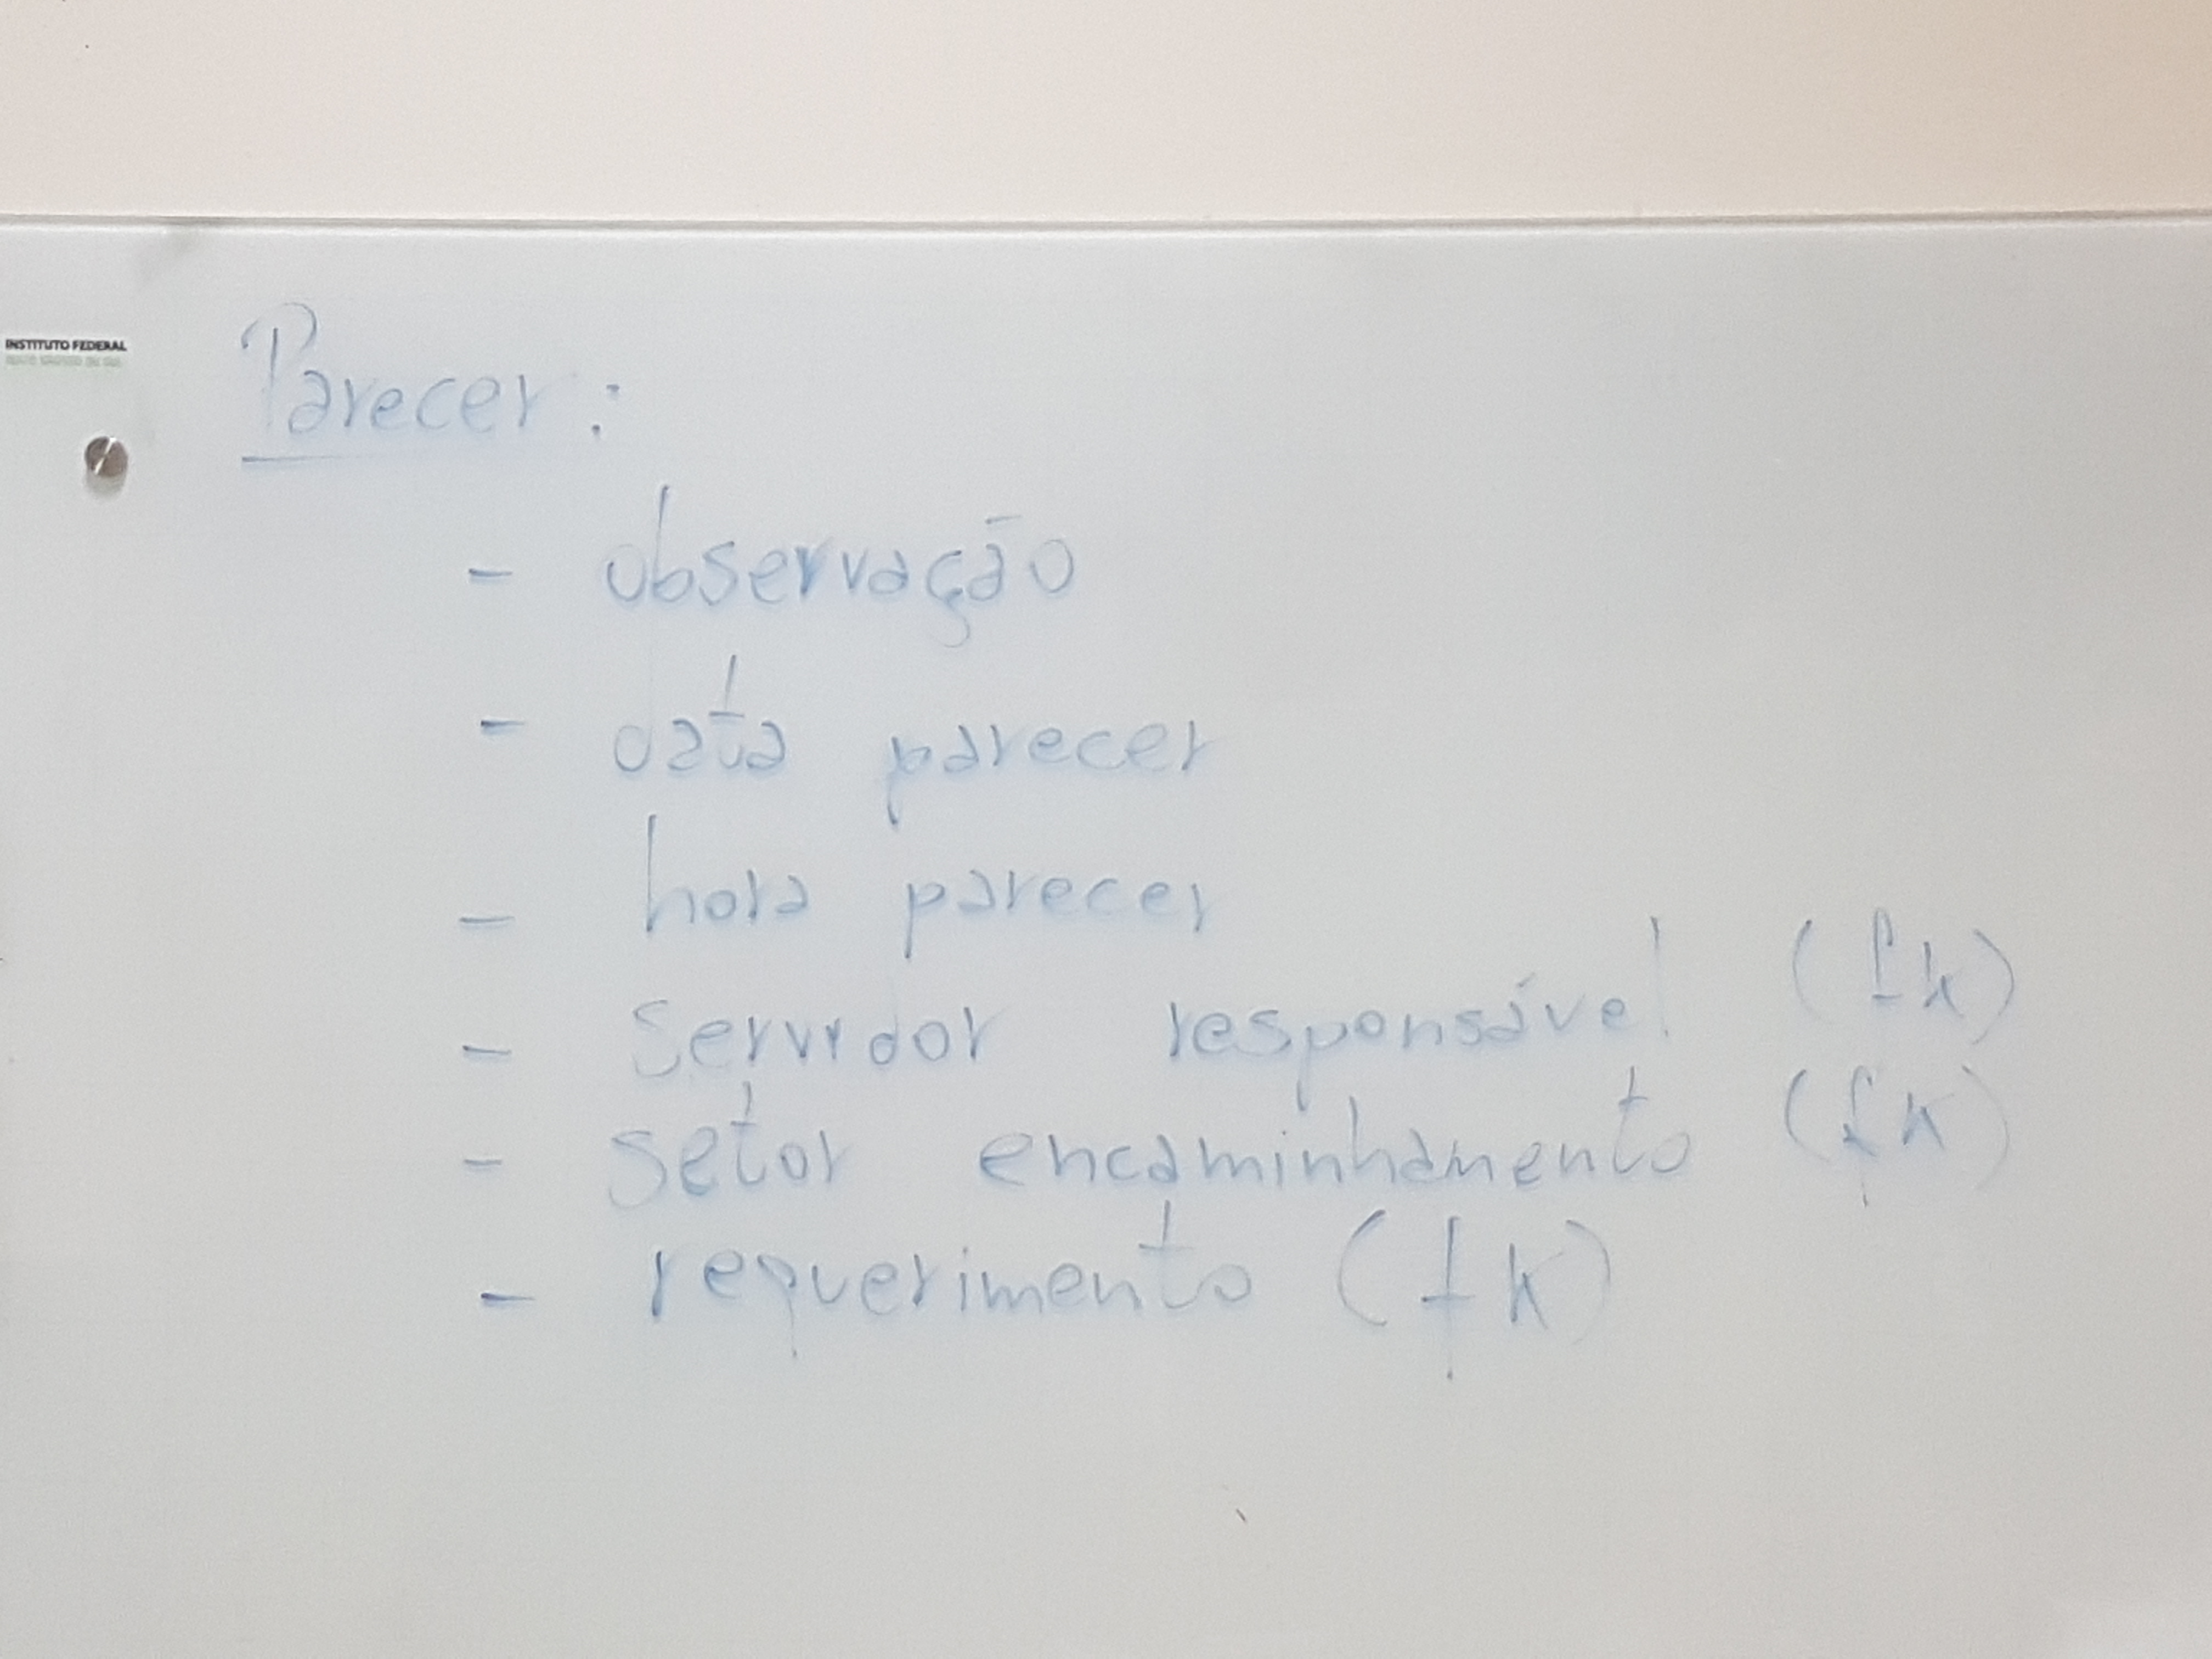 INSTITUTO FEDERAL
Parecer:
- observação
- data parecer
- hora parecer
- servidor responsável (fk)
- setor encaminhamento (fk)
- requerimento (fk)